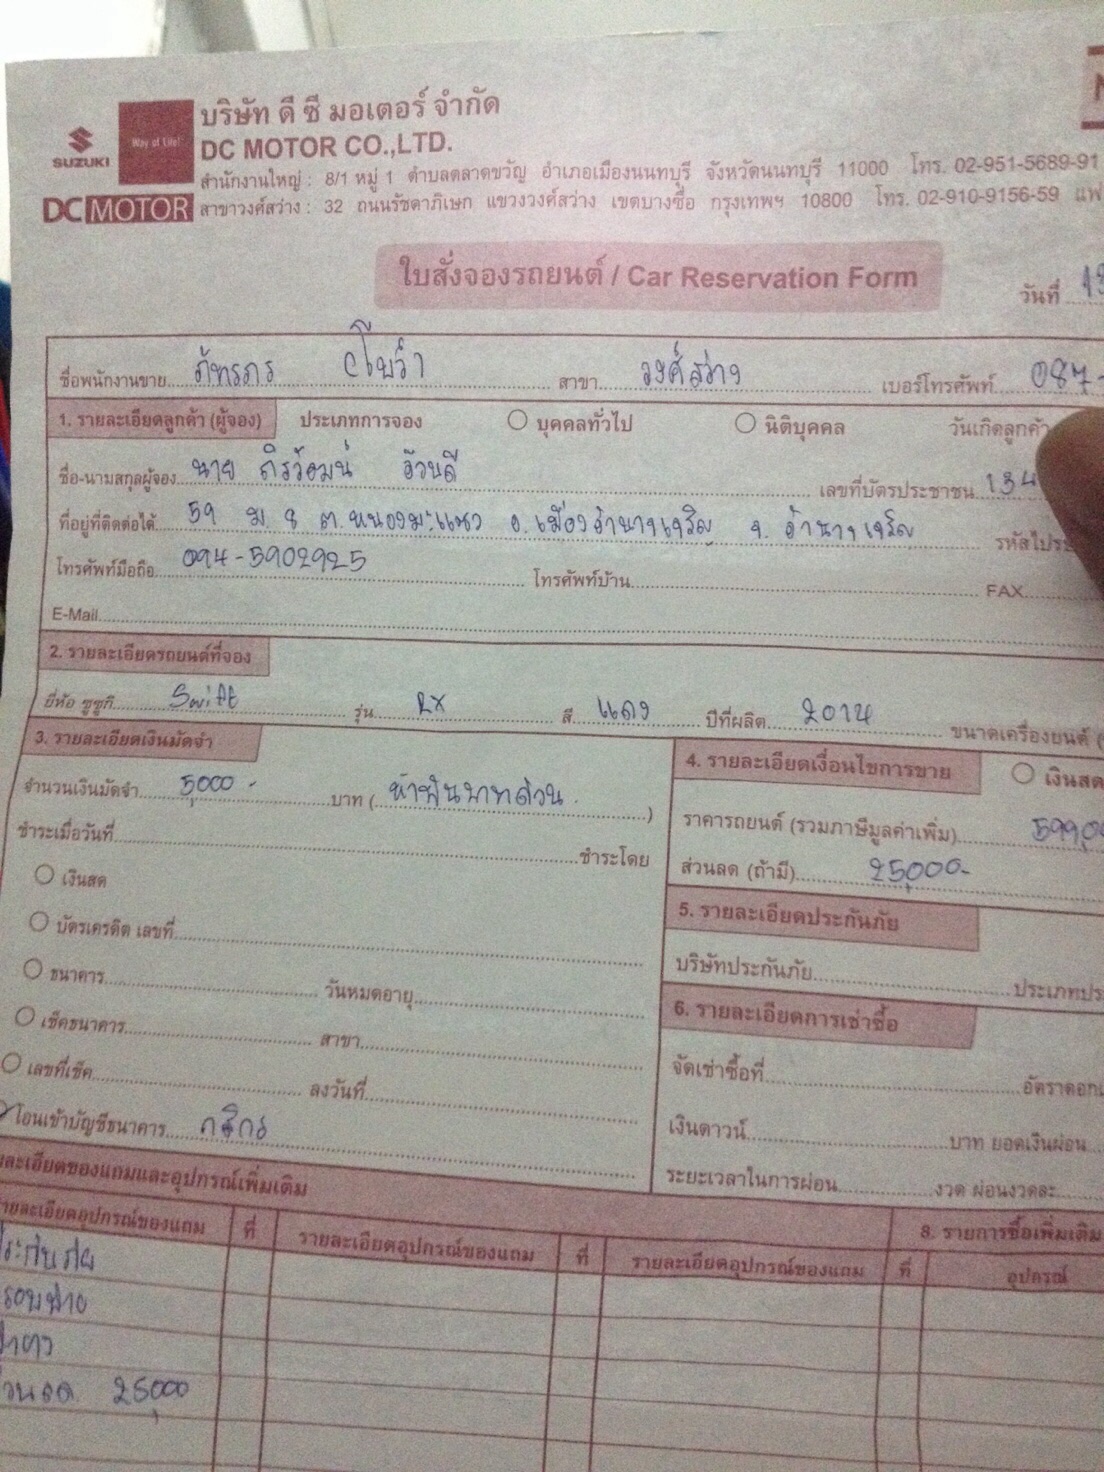 บริษัท ดี ซี มอเตอร์ จำกัด
SUZUKI
Way of Life!
DC MOTOR CO.,LTD.
สำนักงานใหญ่ : 8/1 หมู่ 1 ตำบลตลาดขวัญ อำเภอเมืองนนทบุรี จังหวัดนนทบุรี 11000 โทร. 02-951-5689-91
DC MOTOR สาขาวงศ์สว่าง : 32 ถนนรัชดาภิเษก แขวงวงศ์สว่าง เขตบางซื่อ กรุงเทพฯ 10800 โทร. 02-910-9156-59 แฟ
ใบสั่งจองรถยนต์ / Car Reservation Form
วันที่
ชื่อพนักงานขาย ภัทรภร สาขา วงศ์สว่าง เบอร์โทรศัพท์ 087-
1. รายละเอียดลูกค้า (ผู้จอง) ประเภทการจอง บุคคลทั่วไป นิติบุคคล วันเกิดลูกค้า
ชื่อ-นามสกุลผู้จอง นาย อ้วนดี เลขที่บัตรประชาชน 134
ที่อยู่ที่ติดต่อได้ 59 ม. 8 ต.หนองมะแซว อ.เมืองอำนาจเจริญ จ. อำนาจเจริญ รหัสไปร
โทรศัพท์มือถือ 094-5902925 โทรศัพท์บ้าน FAX
E-Mail
2. รายละเอียดรถยนต์ที่จอง
ยี่ห้อ ซูซูกิ Swift รุ่น RX สี แดง ปีที่ผลิต 2014 ขนาดเครื่องยนต์ (
3. รายละเอียดเงินมัดจำ
จำนวนเงินมัดจำ 5,000.- บาท ( ห้าพันบาทถ้วน )
ชำระเมื่อวันที่ ชำระโดย
เงินสด
บัตรเครดิต เลขที่
ธนาคาร วันหมดอายุ
เช็คธนาคาร สาขา
เลขที่เช็ค ลงวันที่
โอนเข้าบัญชีธนาคาร กสิกร
4. รายละเอียดเงื่อนไขการขาย เงินสด
ราคารถยนต์ (รวมภาษีมูลค่าเพิ่ม) 599,0
ส่วนลด (ถ้ามี) 25,000-
5. รายละเอียดประกันภัย
บริษัทประกันภัย ประเภทประ
6. รายละเอียดการเช่าซื้อ
จัดเช่าซื้อที่ อัตราดอกเ
เงินดาวน์ บาท ยอดเงินผ่อน
ระยะเวลาในการผ่อน งวด ผ่อนงวดละ
ละเอียดของแถมและอุปกรณ์เพิ่มเติม
8. รายการซื้อเพิ่มเติม
ายละเอียดอุปกรณ์ของแถม ที่ รายละเอียดอุปกรณ์ของแถม ที่ รายละเอียดอุปกรณ์ของแถม ที่ อุปกรณ์
ระกันภัย
รอบป้าย
วนลด 25,000